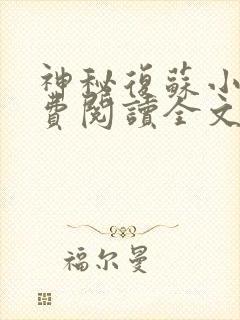 神秘復蘇小
費閱讀全文
福尔曼